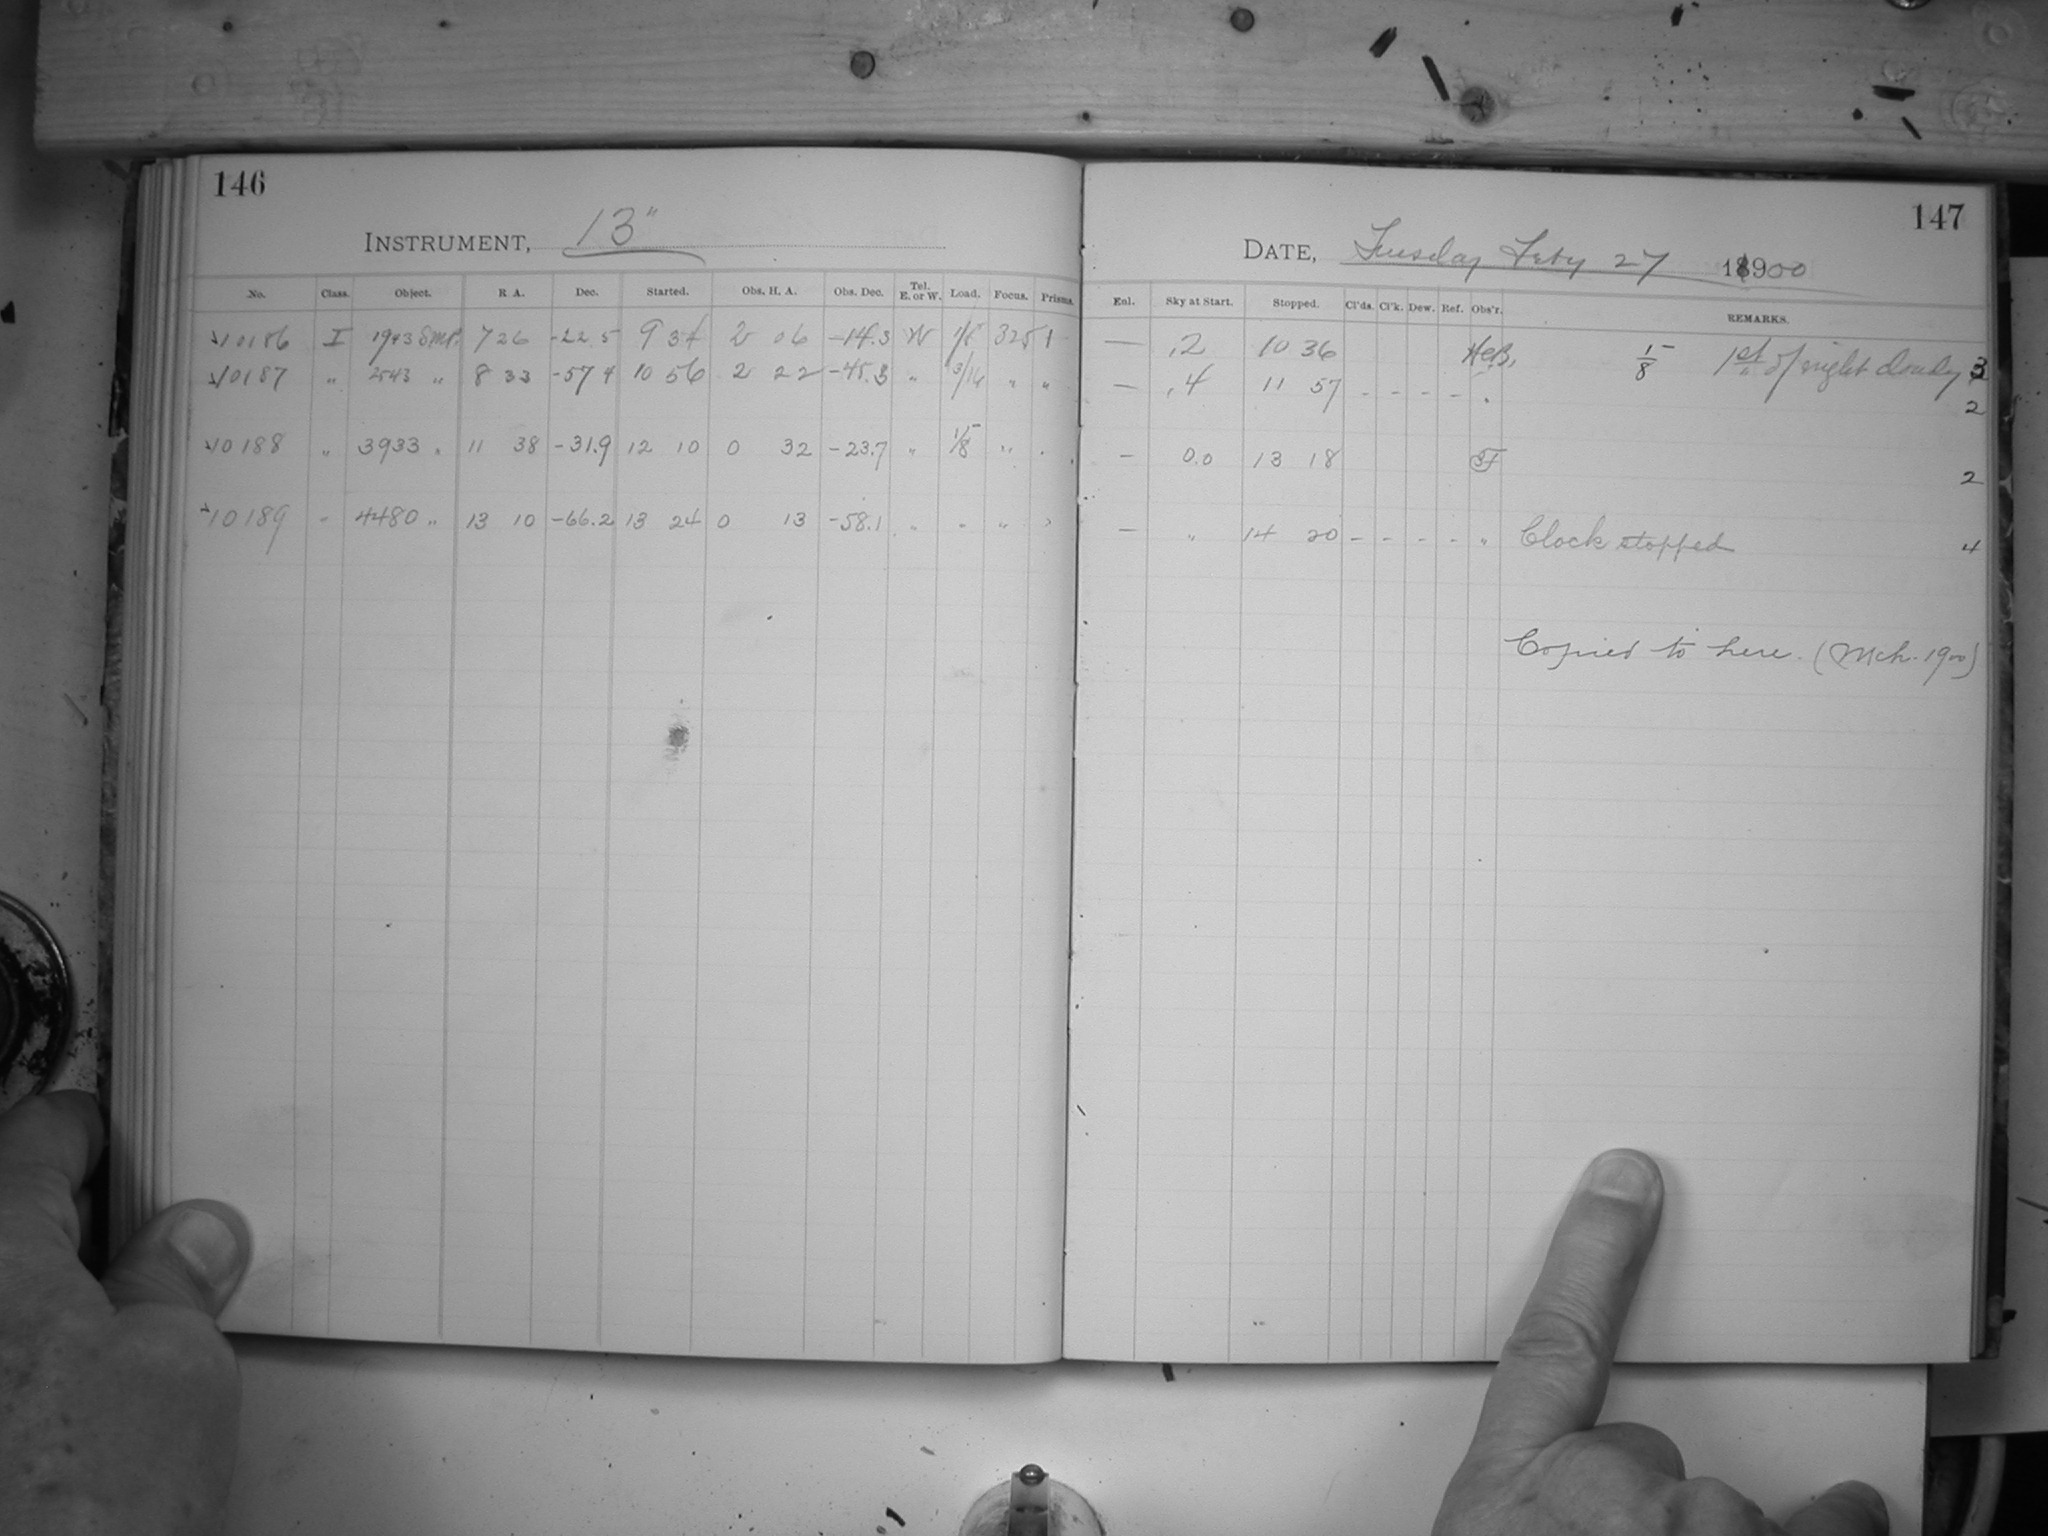 146
INSTRUMENT, 13"
No. Class. Object. R A. Dec. Started. Obs. H. A. Obs. Dec. Tel. E. or W. Load. Focus. Prisms.
10186 I 1943 S.M.P. 7 26 -22.5 9 34 2 06 -14.3 W 325 1
10187 " 2543 " 8 33 -57 4 10 56 2 22 -45.3 " 3/16 " "
10188 " 3933 " 11 38 -31.9 12 10 0 32 -23.7 " 1/8 " "
10189 " 4480 " 13 10 -66.2 13 24 0 13 -58.1 " " " "
147
DATE, Tuesday Feby 27 1900
Enl. Sky at Start. Stopped. Cl'ds. Cl'k. Dew. Ref. Obs'r. REMARKS.
— .2 10 36 1/8 1st " of night cloudy 3
— .4 11 57 - - - - " 2
— 0.0 13 18 2
— " 14 20 - - - - " Clock stopped 4
Copied to here. (Mch. 1900)